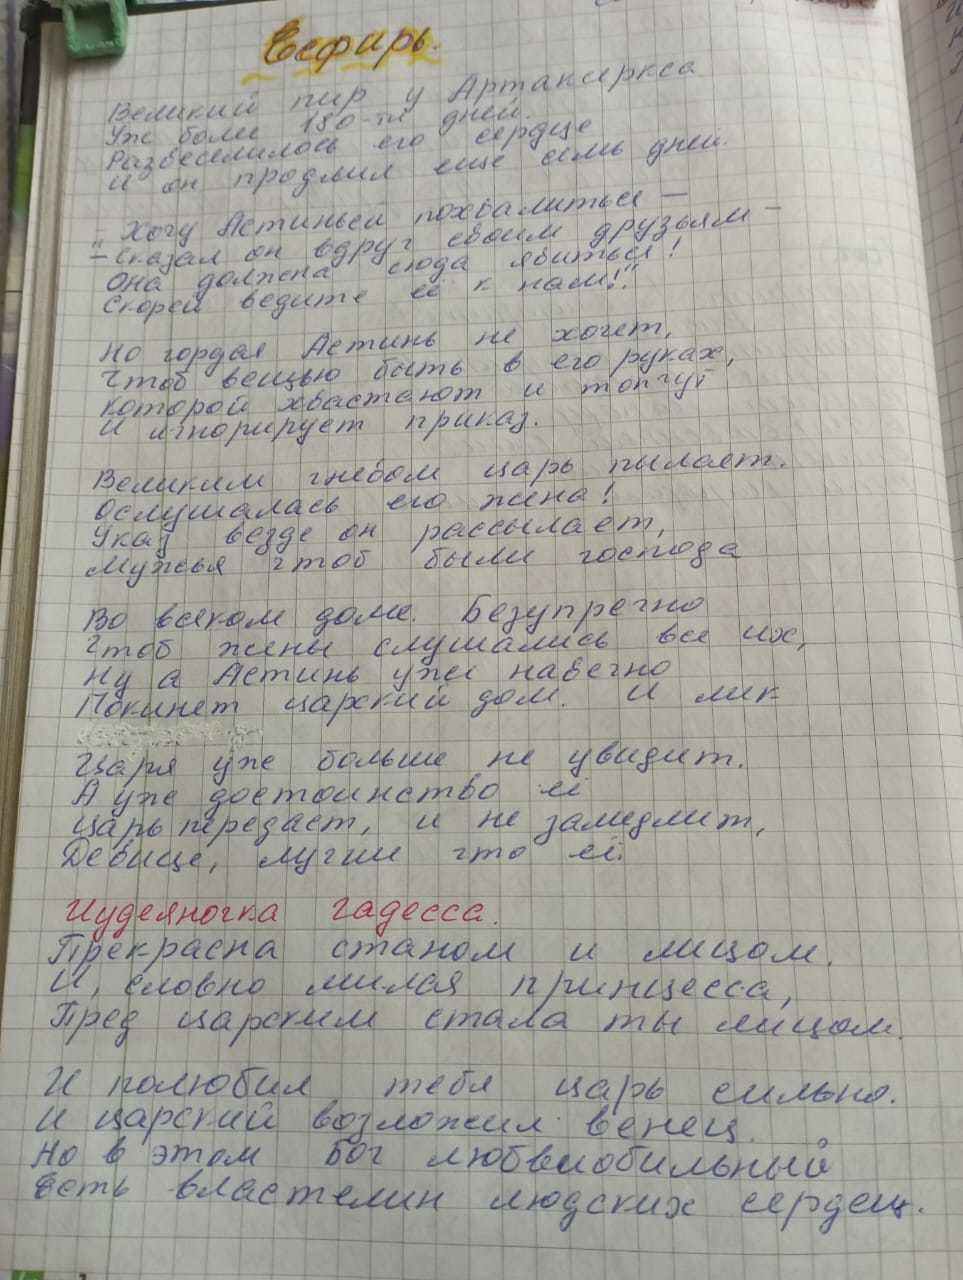 Есфирь.
Великий пир у Артаксеркса
Уже более 180-ти дней.
Развеселилось его сердце
И он продлил еще семь дней.
- Хочу Астиньей похвалиться -
- Сказал он вдруг своим друзьям -
"Она должна сюда явиться!
Скорей ведите её к нам!"
Но гордая Астинь не хочет,
Чтоб вещью быть в его руках,
Которой хвастают и топчут
И игнорирует приказ.
Великим гневом царь пылает.
Ослушалась его жена!
Указ везде он рассылает,
Мужья чтоб были господа
Во всяком доме. Безупречно
Чтоб жены слушались все их,
Ну а Астинь уже навечно
Покинет царский дом. И лик
Царя уже больше не увидит.
А уже достоинство её
Царь передаст, и не замедлит,
Девице, лучше что её.
Иудеяночка Гадесса.
Прекрасна станом и лицом.
И, словно милая принцесса,
Пред царским стала ты лицом.
И полюбил тебя царь сильно.
И царский возложил венец.
Но в этом Бог любвиобильный
Есть властелин людских сердец.